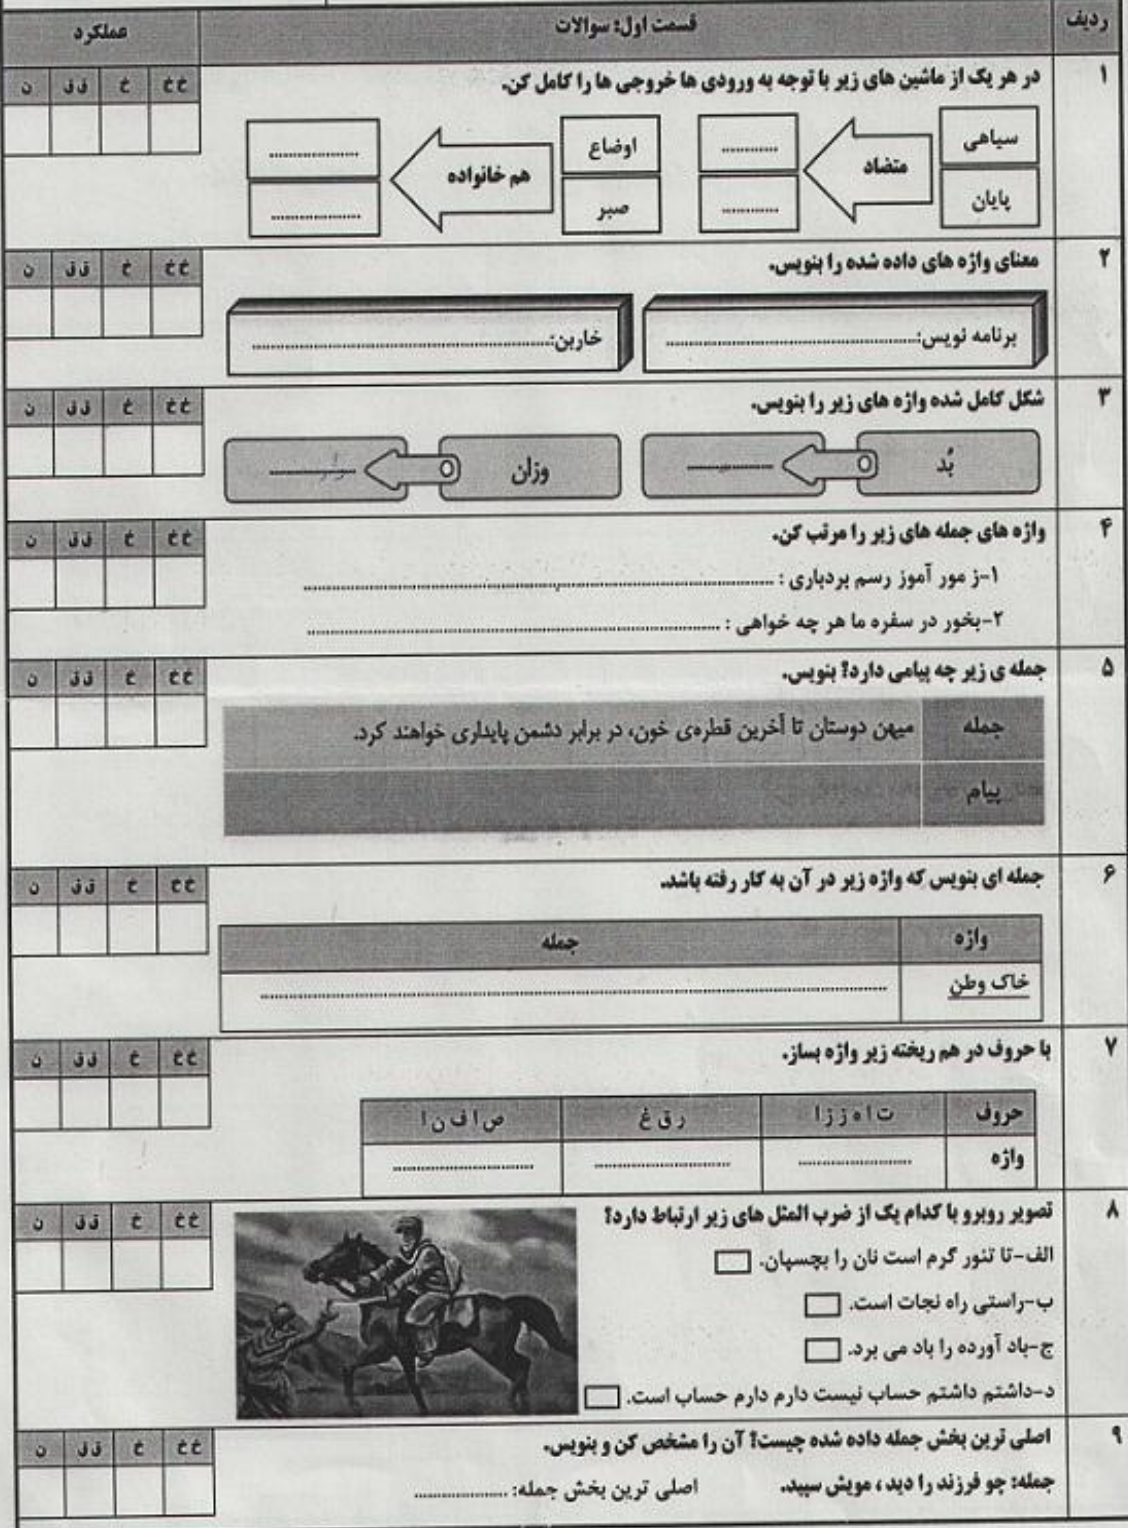 ردیف
قسمت اول: سوالات
عملکرد
۱
در هر یک از ماشین های زیر با توجه به ورودی ها خروجی ها را کامل کن.
خ خ
خ
ق ق
ن
سیاهی
پایان
متضاد
............
............
اوضاع
صبر
هم خانواده
...................
...................
۲
معنای واژه های داده شده را بنویس.
خ خ
خ
ق ق
ن
برنامه نویس:......................................................
خاربن:................................................................
۳
شکل کامل شده واژه های زیر را بنویس.
خ خ
خ
ق ق
ن
بُد
..................
وزان
..................
۴
واژه های جمله های زیر را مرتب کن.
خ خ
خ
ق ق
ن
۱-ز مور آموز رسم بردباری : ................................................................
۲-بخور در سفره ما هر چه خواهی : ................................................................
۵
جمله ی زیر چه پیامی دارد؟ بنویس.
خ خ
خ
ق ق
ن
جمله
میهن دوستان تا آخرین قطره‌ی خون، در برابر دشمن پایداری خواهند کرد.
پیام
۶
جمله ای بنویس که واژه زیر در آن به کار رفته باشد.
خ خ
خ
ق ق
ن
واژه
جمله
خاک وطن
................................................................
۷
با حروف در هم ریخته زیر واژه بساز.
خ خ
خ
ق ق
ن
حروف
ت ا ه ز ز ا
ر ق غ
ص ا ف ن ا
واژه
........................
........................
........................
۸
تصویر روبرو با کدام یک از ضرب المثل های زیر ارتباط دارد؟
خ خ
خ
ق ق
ن
الف-تا تنور گرم است نان را بچسپان.
ب-راستی راه نجات است.
ج-باد آورده را باد می برد.
د-داشتم داشتم حساب نیست دارم دارم حساب است.
۹
اصلی ترین بخش جمله داده شده چیست؟ آن را مشخص کن و بنویس.
خ خ
خ
ق ق
ن
جمله: چو فرزند را دید ، مویش سپید.
اصلی ترین بخش جمله: ....................